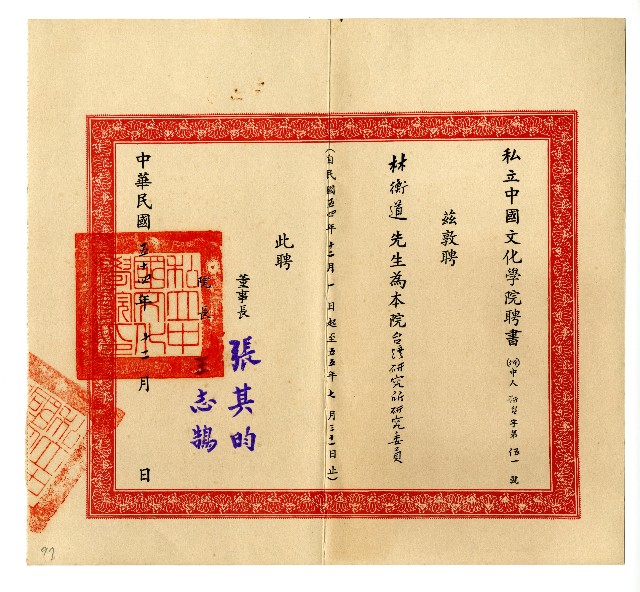 私立中國文化學院聘書 (54)中人 字第伍一號
茲敦聘
林衡道 先生為本院台灣研究所研究委員
(自民國五四年十二月一日起至五五年七月三十一日止)
此聘
董事長 張其昀
院長 王志鵠
中華民國五十四年十二月 日
私立中國文化學院印
97